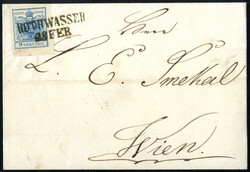 ROTHWASSER
23 FER
Herrn
L. E. Smekal
Wien.